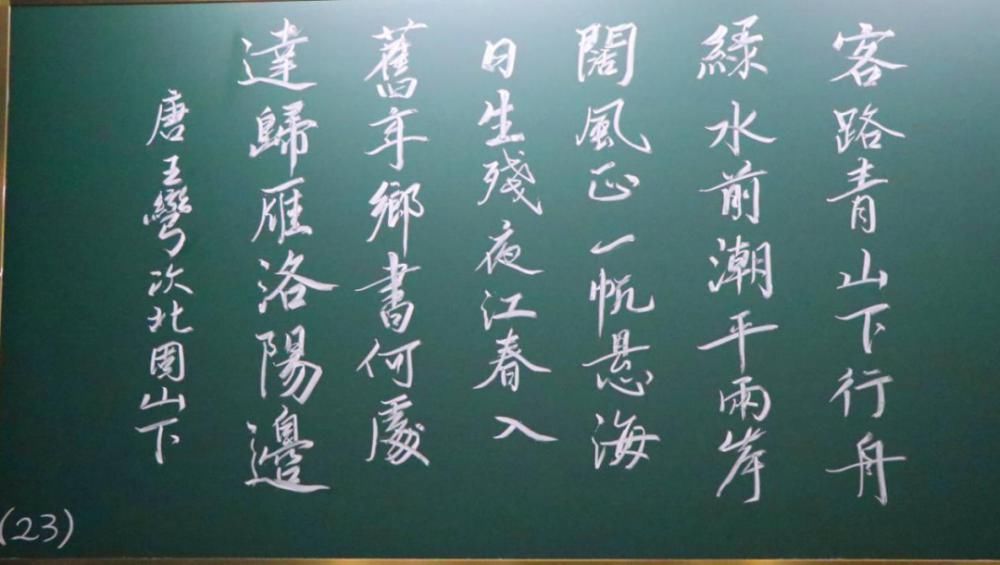 客路青山下行舟
綠水前潮平兩岸
闊風正一帆懸海
日生殘夜江春入
舊年鄉書何處
達歸雁洛陽邊
唐王彎次北固山下
(23)